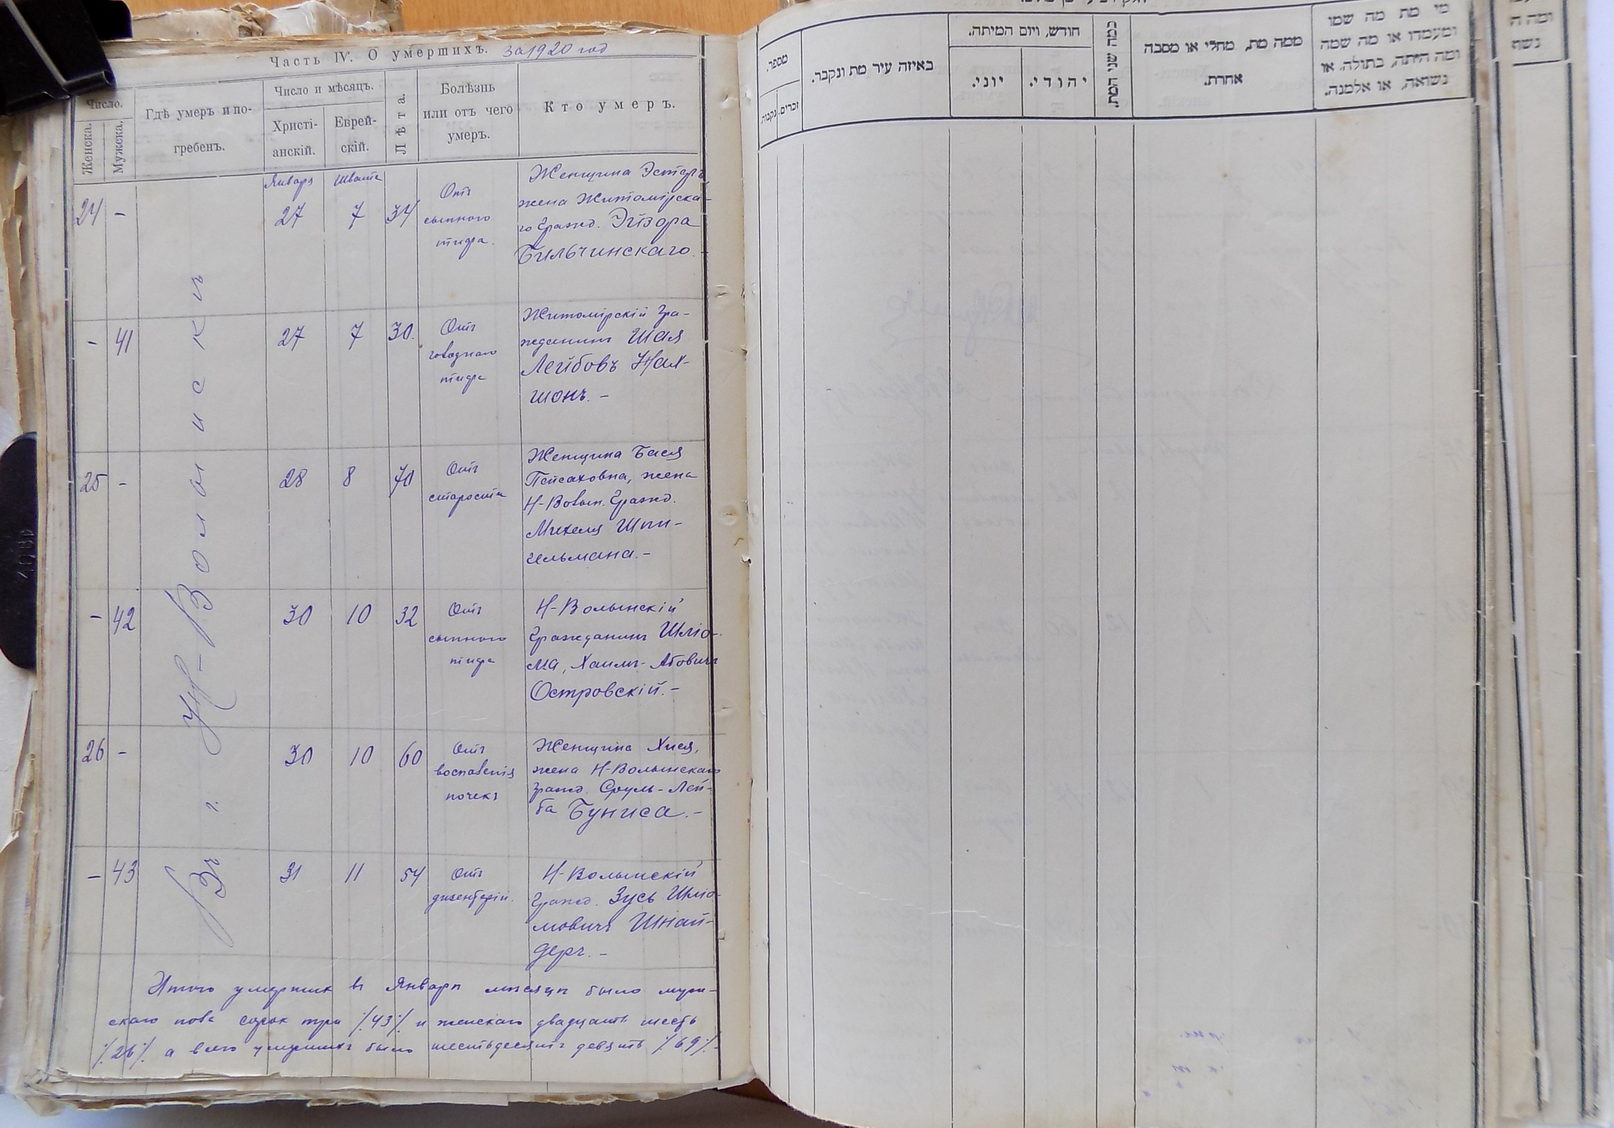 Часть IV. О умершихъ. за 1920 год
Число.
Женска.
Мужска.
Гдѣ умеръ и по-
гребенъ.
Число и мѣсяцъ.
Христі-
анскій.
Еврей-
скій.
Лѣта.
Болѣзнь
или отъ чего
умеръ.
Кто умеръ.
Въ г. Н-Волынски
Января Швата
24 - 27 7 34
Отъ
сыпного
тифа.
Женщина Эстеръ,
жена Житомірска-
го Гражд. Эйзора
Бильчинскаго. -
- 41 27 7 30.
Отъ
тифа
Житомірскій Гра-
жданинъ Шая
Лейбовъ Нах-
шонъ. -
25 - 28 8 70
Отъ
старости
Женщина Бася
Пейсаховна, жена
Н-Волын. Гражд.
Михеля Шпи-
гельмана. -
- 42 30 10 32
Отъ
сыпного
тифа
Н-Волынскій
Гражданинъ Шлио-
ма, Хаимъ-Абовичъ
Островскій. -
26 - 30 10 60
Отъ
воспаленія
почекъ
Женщина Хися,
жена Н-Волынскаго
гражд. Сруль-Лей-
ба Буниса. -
- 43 31 11 54
Отъ
дизентеріи.
Н-Волынскій
Гражд. Зусь Шлио-
мовичъ Шнай-
деръ. -
Итого умершихъ въ Январѣ мѣсяцѣ было муж-
скаго пола сорок три /43/ и женскаго двадцать шесть
/26/ а всего умершихъ было шестьдесятъ девять /69/. -
מספר.
זכרים.
נקבות
באיזה עיר מת ונקבר.
חודש, ויום המיתה.
יוני.
יהודי.
כמה שני המת.
ממה מת, מחלי או מסבה
אחרת.
מי מת מה שמו
ומעמדו או מה שמה
ומה היתה, בתולה או
נשואה, או אלמנה.